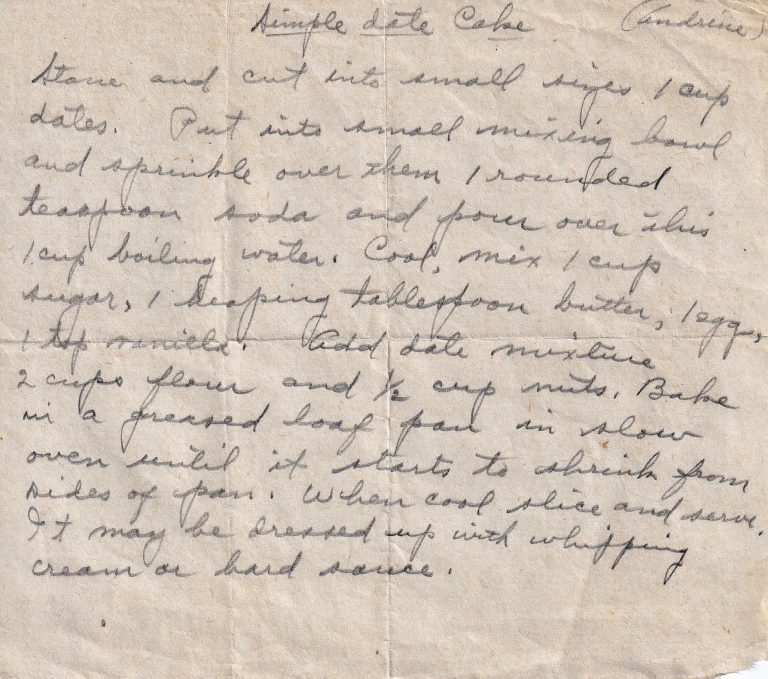 Simple date Cake (Andrine)
Stone and cut into small sizes 1 cup
dates. Put into small mixing bowl
and sprinkle over them 1 rounded
teaspoon soda and pour over this
1 cup boiling water. Cool, mix 1 cup
sugar, 1 heaping tablespoon butter, 1 egg,
1 tsp vanilla. Add date mixture
2 cups flour and ½ cup nuts. Bake
in a greased loaf pan in slow
oven until it starts to shrink from
sides of pan. When cool slice and serve.
It may be dressed up with whipping
cream or hard sauce.